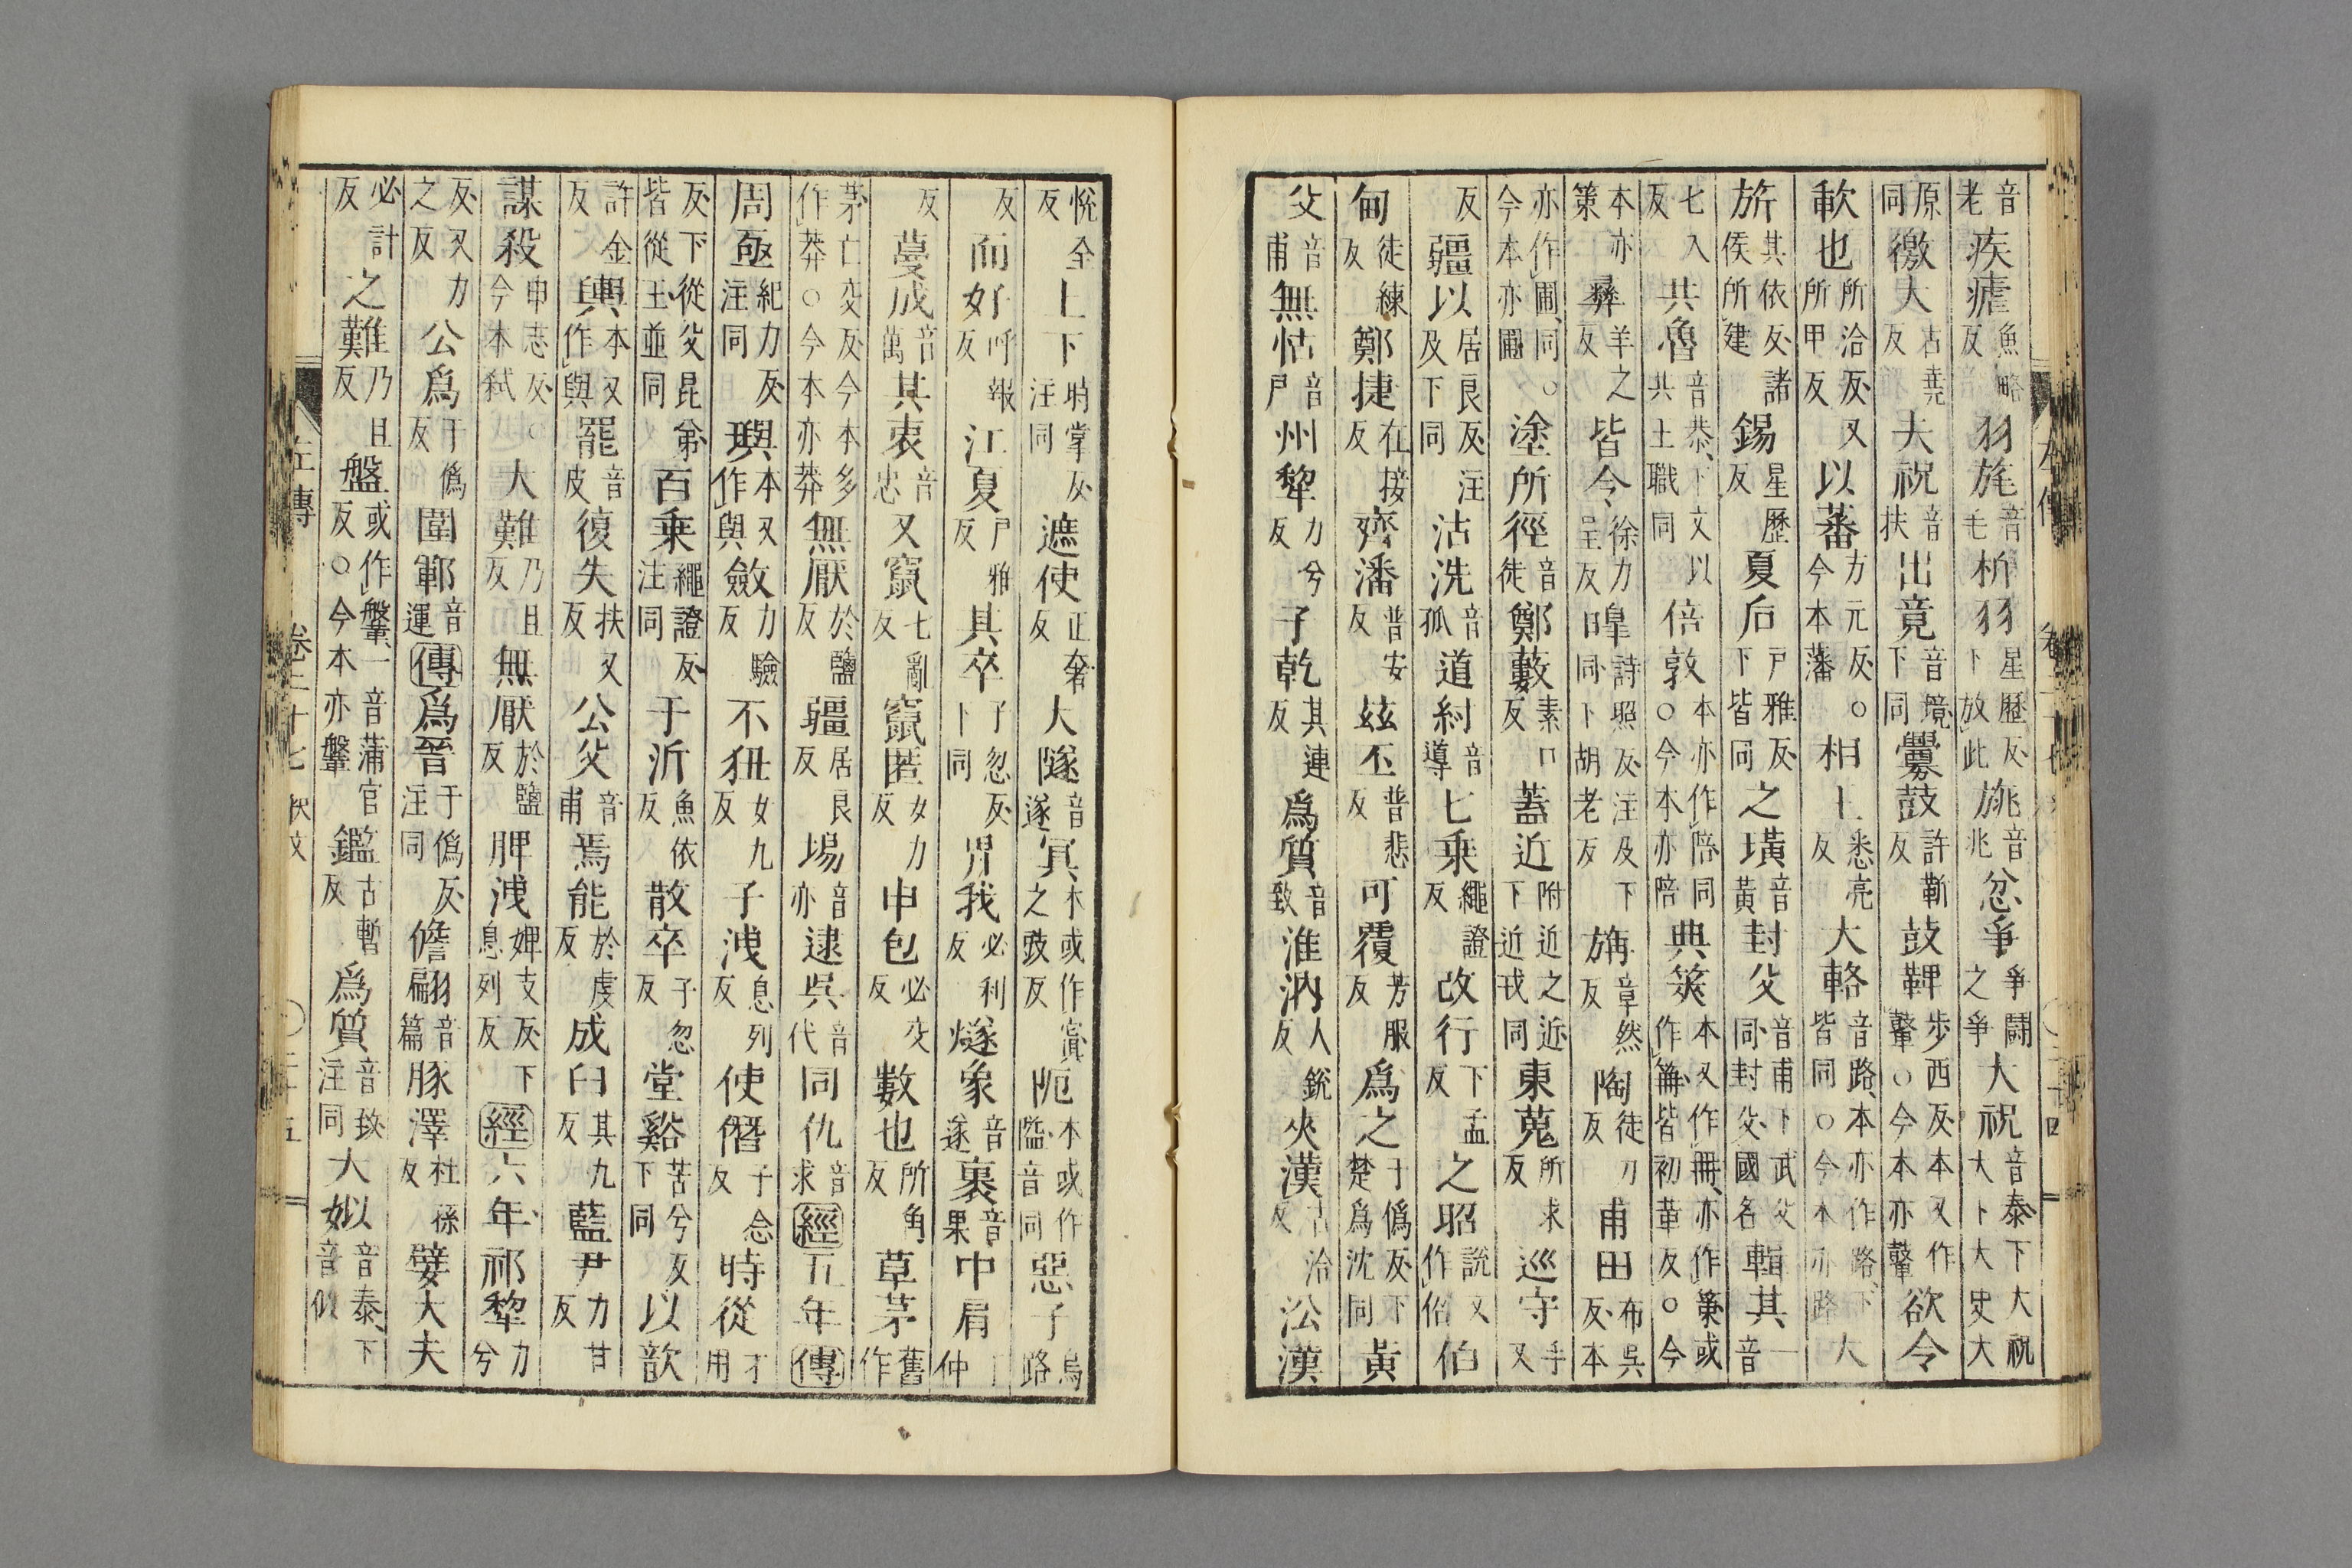 音老疾瘧魚略反羽旄音毛析羽星歷反下放此旐音兆忿爭爭鬪之爭大祝音泰下大祝大卜大史大
原同徼大古堯反夫祝音扶出竟音境下同釁鼓許靳反鼓鞞步西反本又作鼙○今本亦鼙欲令
軟也所洽反又所甲反以蕃方元反○今本藩相土悉亮反大輅音路本亦作路下皆同○今本亦路大
旂其依反諸侯所建錫星歷反夏后戶雅反下皆同之璜音黃封父音甫下武父同封父國名輯其音一
七入反共魯音恭下文以共土職同倍敦本亦作陪同○今本亦陪典筴本又作冊亦作策或作䇲皆初革反○今
本亦策彝羊之反皆令徐力呈反皞詩照反注及下同下胡老反旃章然反陶徒刀反甫田布吳反本
亦作圃同○今本亦圃塗所徑音徒鄭藪素口反蓋近附近之近下近戎同東蒐所求反巡守手又
反疆以居良反注及下同沽洗音孤道紂音導七乘繩證反改行下孟反之昭說文作佋伯
甸徒練反鄭捷在接反齊潘普安反茲丕普悲反可覆芳服反爲之于僞反下楚爲沈同黃
父音甫無怙音戶州犂力兮反子乾其連反爲質音致淮汭人銳反夾漢古洽反㳂漢
悅全反上下時掌反注同遮使正奢反大隧音遂冥本或作寘之豉反阨本或作隘音同惡子烏路
反而好呼報反江夏戶雅反其卒子忽反下同畀我必利反燧象音遂裹音果中肩丁仲
反蔓成音萬其衷音忠又竄七亂反竄匿女力反申包必交反數也所角反草茅舊作
茅亡交反今本多作莽○今本亦莽無厭於鹽反疆居良反埸音亦逮吳音代同仇音求經五年傳
周亟紀力反注同璵本又作與斂力驗反不狃女九反子洩息列反使僭子念反時從才用
反下從父昆弟皆從王並同百乘繩證反注同于沂魚依反散卒子忽反堂谿苦兮反下同以歆
許金反輿本又作與罷音皮復失扶又反公父音甫焉能於虔反成臼其九反藍尹力甘反
謀殺申志反○今本弒大難乃旦反無厭於鹽反脾洩婢支反下息列反經六年祁犂力兮
反又力之反公爲于僞反圍鄆音運傳爲晉于僞反注同儋翩音篇豚澤杜孫反嬖大夫
必計反之難乃旦反盤或作鞶一音蒲官反○今本亦鞶鑑古暫反爲質音致注同大姒音泰下音似
左傳 卷二十七 釋文